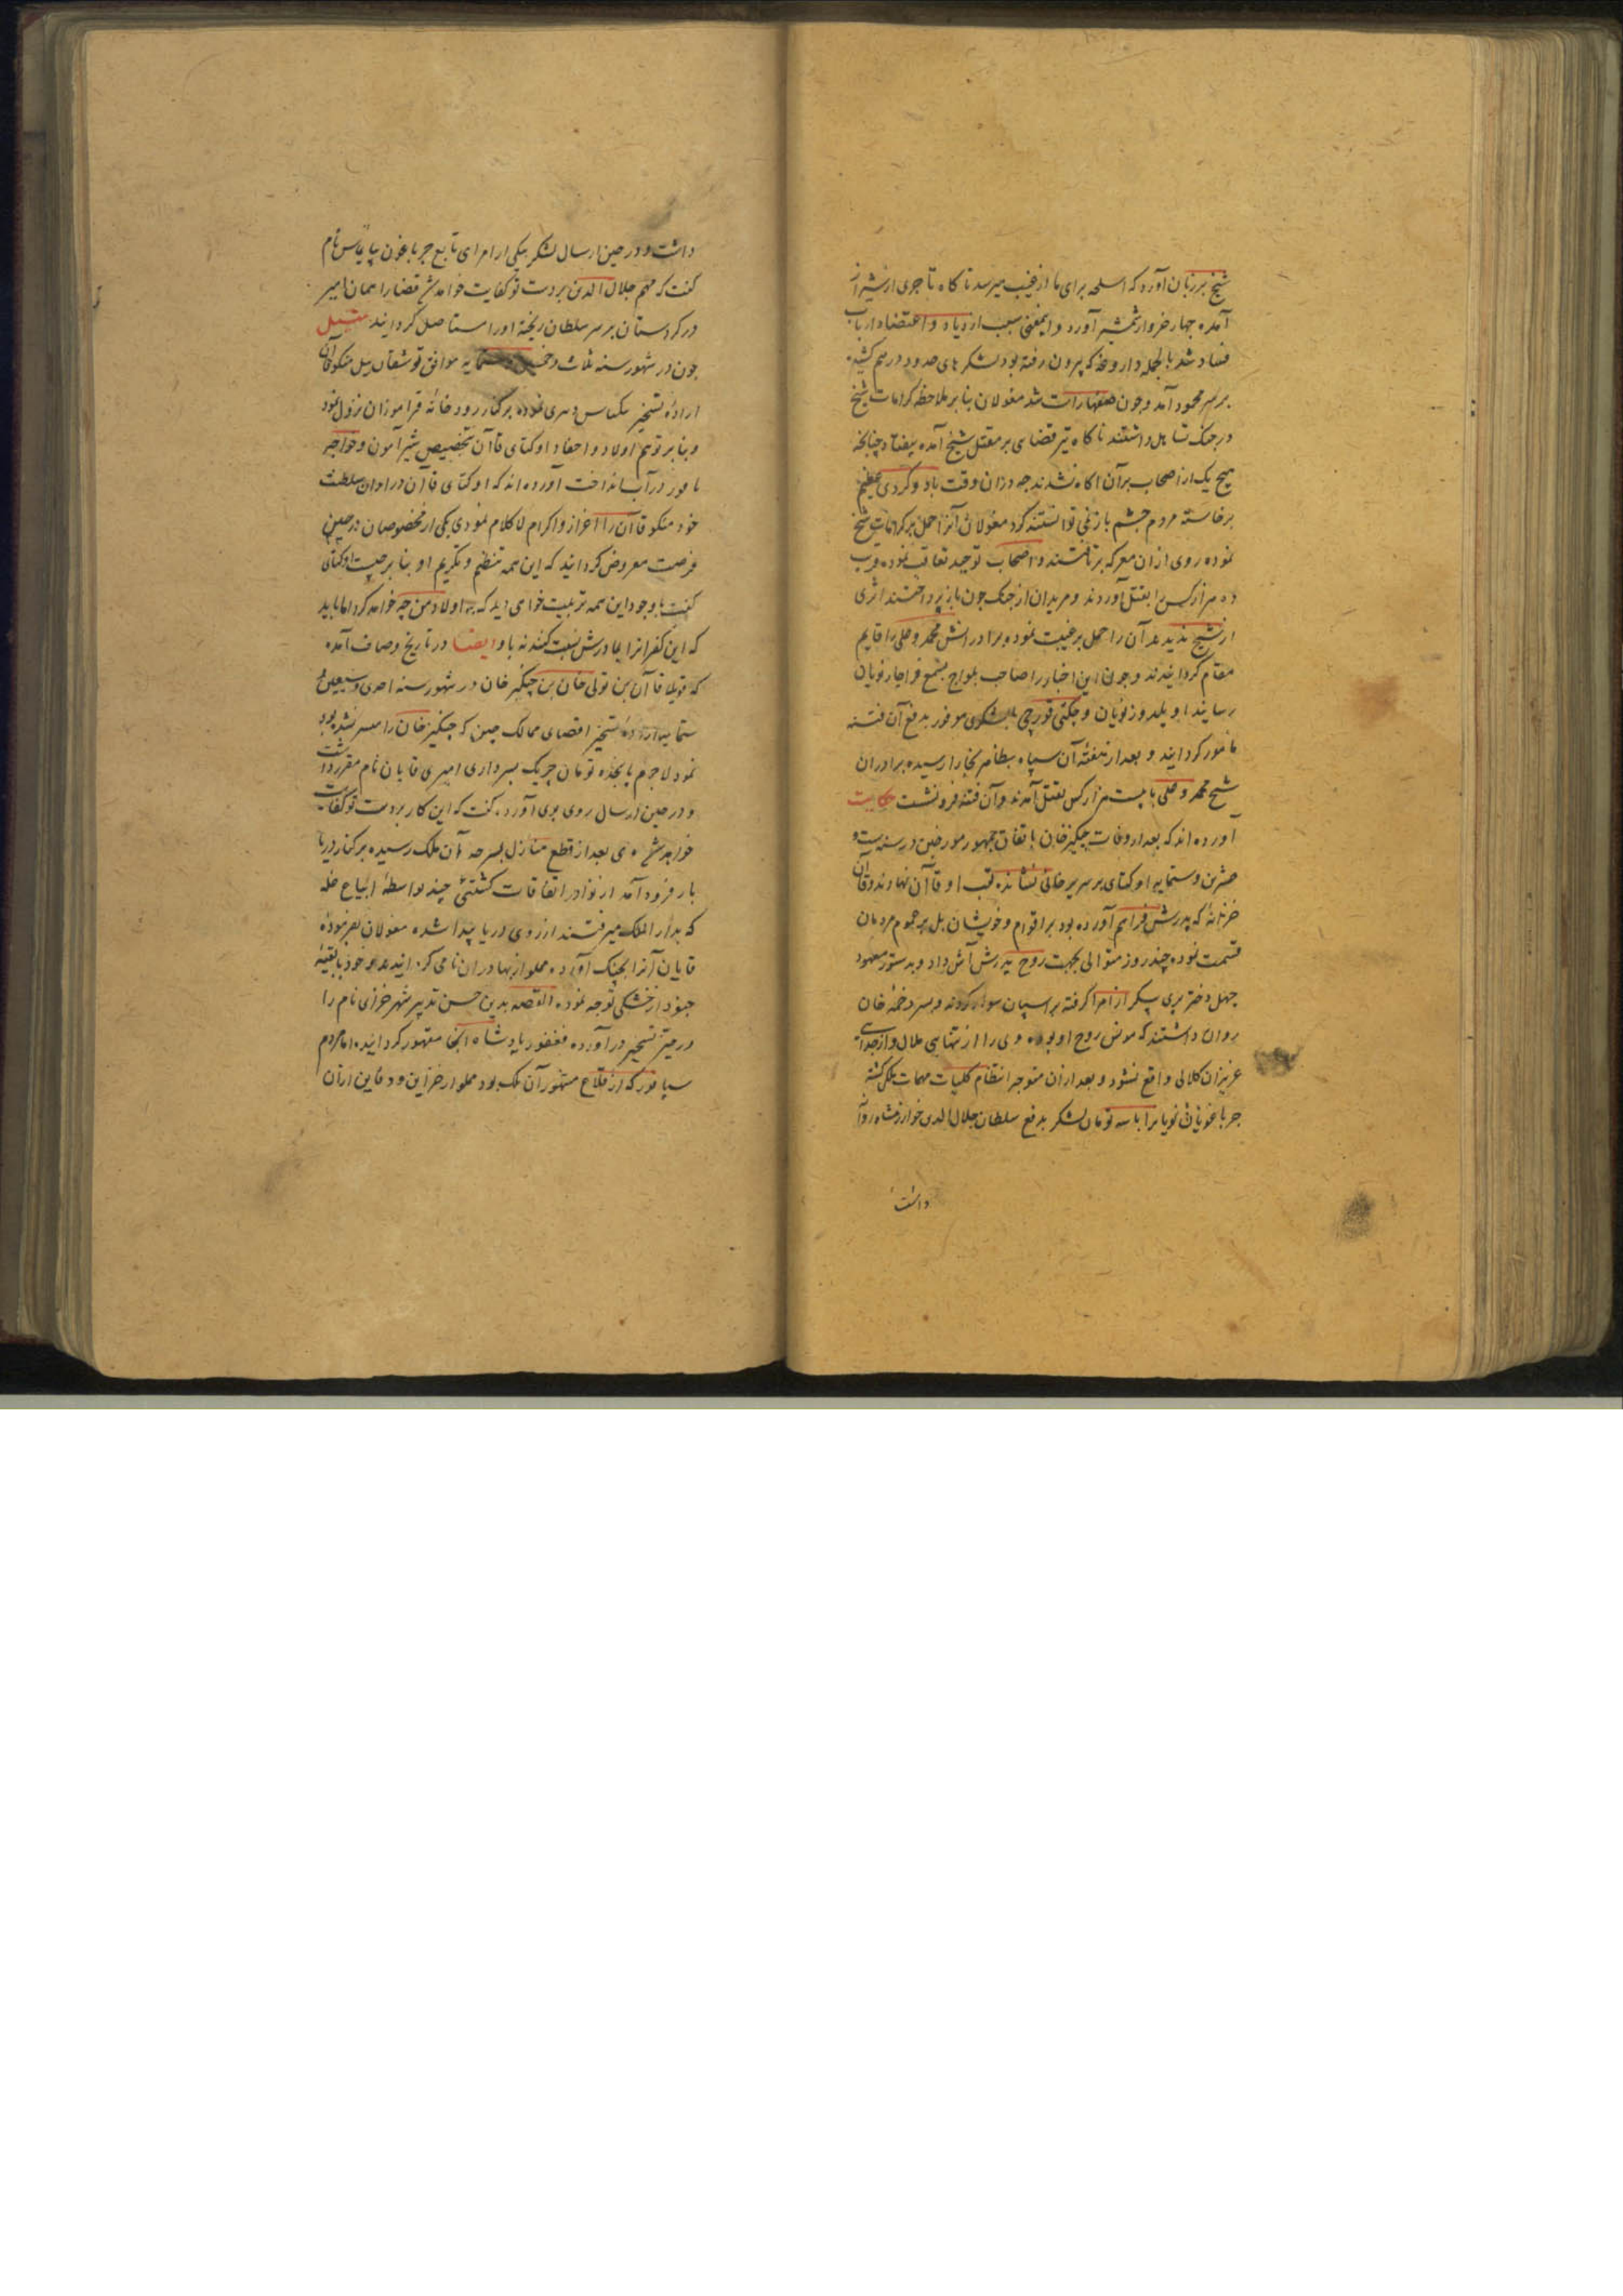 شیخ برزبان آورد که اسلحه برای ما از غیب میرسد ناکاه تاجری از شیراز
آمده چهار خروار شمشیر آورد و اینمعنی سبب ازدیاد و اعتضاد ارباب
فساد شد بالجمله داروغه که بیرون رفته بود لشکرهای حدود درهم کشیده
بر سر محمود آمد و چون صفها راست شد مغولان بنا بر ملاحظه کرامات شیخ
در جنک تساهل داشتند ناکاه تیر قضای بر مقتل شیخ آمده بیفتاد چنانچه
هیچ یک از اصحاب برآن اکاه نشدند چه دران وقت باد و کردی عظیم
برخاسته مردم چشم باز نمی توانستند کرد مغولان آنرا حمل بر کرامات شیخ
نموده روی ازان معرکه برتافتند و اصحاب توحید تعاقب نموده قرب
ده هزار کس را بقتل آوردند و مریدان از جنک چون باز پرداختند اثری
از شیخ ندیدند آن را حمل بر غیبت نموده برادرانش محمد و علی را قایم
مقام کردانیدند و چون این اخبار را صاحب یلواج بسمع قراچار نویان
رسانید او یلدوز نویان و چکتی قورچی با لشکری موفور بدفع آن فتنه
مامور کردانید و بعد از هفته آن سپاه بظاهر بخارا رسیده برادران
شیخ محمد و علی با بیست هزار کس بقتل آمدند و آن فتنه فرونشست حکایت
آورده اند که بعد از وفات چنکیز خان باتفاق جمهور مورخین در سنه ست و
عشرین و ستمایه اوکتای بر سریر خانی نشاندند لقب او قاآن نهادند و قاآن
خزانهٔ که پدرش فراهم آورده بود بر اقوام و خویشان بل بر عموم مردمان
قسمت نموده چند روز متوالی بجهت روح پدرش آش داد و بدستور معهود
چهل دختر پری پیکر از امرا کرفته بر اسپان سوار کردند و بسر دخمه خان
روان داشتند که مونس روح او بوده وی را از تنهایی ملال و از جدایی
عزیزان کلالی واقع نشود و بعد ازان متوجه انتظام کلیات مهمات ملکی کشته
جرماغون نویانرا با سه تومان لشکر بدفع سلطان جلال الدین خوارزمشاه روان
داشت
داشت و در حین ارسال لشکر بیکی از امرای تابع جرماغون نام
کفت که مهم جلال الدین بر دست تو کفایت خواهد شد قضا را همان امیر
در کردستان بر سر سلطان ریخته او را مستاصل کردانید
چون در شهور سنه ثلاث و خمسین و ستمایه موافق توشقان ییل منکو قاآن
ارادهٔ تسخیر نموده بر کنار رودخانه قراموزان نزول نمود
و بنا بر توهم اولاد و احفاد اوکتای قاآن بتخصیص شیرامون و خواجه
نامور در آب انداخت آورده اند که اوکتای قاآن در اوان سلطنت
خود منکو قاآن را اعزاز و اکرام لاکلام نمودی یکی از مخصوصان در حین
فرصت معروض کردانید که این همه تنظیم و تکریم او بنا بر چیست اوکتای
کفت با وجود این همه تربیت خواهی دید که به اولاد من چه خواهد کرد اما باید
که این کفرانرا بمادرش نسبت کنند نه باو ایضا در تاریخ وصاف آمده
که قوبیلا قاآن بن تولی خان بن چنکیز خان در شهور سنه احدی و سبعین و
ستمایه ارادهٔ تسخیر اقصای ممالک چین که چنکیز خان را میسر نشده بود
نمود لاجرم پانجده تومان چریک بسرداری امیری قایان نام مقرر داشت
و در حین ارسال روی بوی آورده کفت که این کار بر دست تو کفایت
خواهد شد وی بعد از قطع منازل بسرحد آن ملک رسیده بر کنار دریا
بار فرود آمد از نوادر اتفاقات کشتیی چند بواسطهٔ ابتیاع غله
که بدار الملک میرفتند از روی دریا پیدا شده مغولان بفرمودهٔ
قایان آنرا بچنک آورده مملو از بهادران نامی کردانیدند و خود با بقیه
جنود از خشکی توجه نموده القصه بدین حسن تدبیر شهر خنزای نام را
در حیز تسخیر در آورده فغفور پادشاه انجا مقهور کردانید اما مردم
سیانور که از قلاع مشهور آن ملک بود مملو از خزاین و دفاین ازان